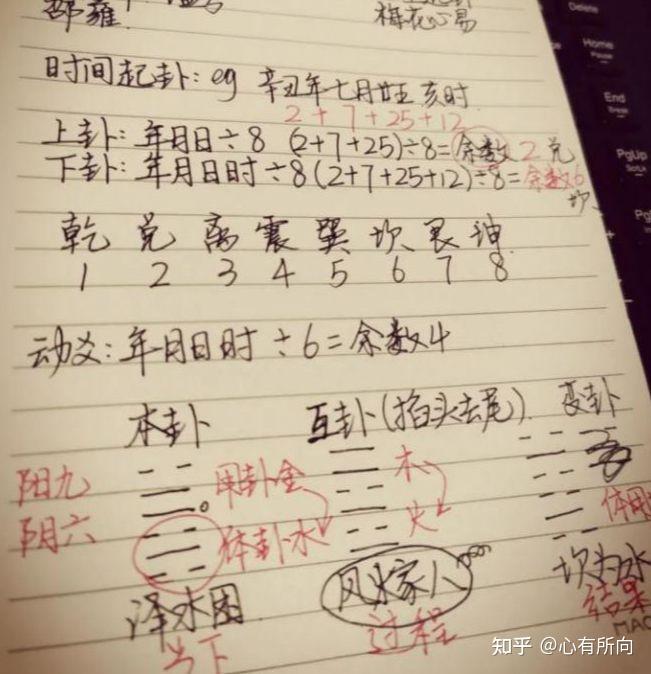 邵雍
梅花心易
时间起卦: eg 辛丑年七月廿五 亥时
2 + 7 + 25 + 12
上卦: 年月日÷8 (2+7+25)÷8=余数 2 兑
下卦: 年月日时÷8(2+7+25+12)÷8=余数6
坎
乾 兑 离 震 巽 坎 艮 坤
1 2 3 4 5 6 7 8
动爻: 年月日时÷6=余数4
本卦 互卦(掐头去尾) 变卦
阳九 用卦金 木
阴六 体卦水 火 体用
泽水困 风火家人 坎为水
当下 过程 结果
Delete
Home
Pause
End
Break
PgUp
ScrLk
知乎 @心有所向